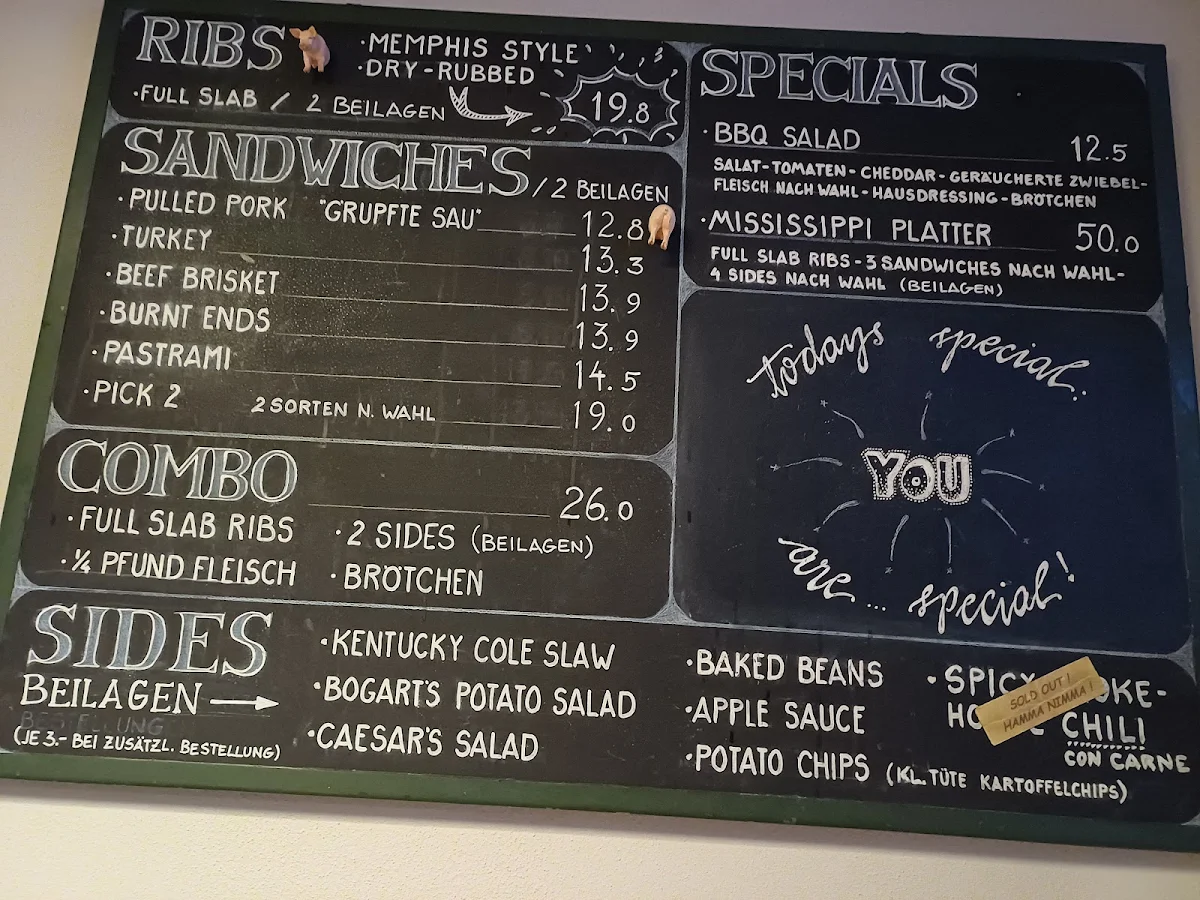 RIBS
·MEMPHIS STYLE
·DRY-RUBBED
·FULL SLAB / 2 BEILAGEN 19.8
SANDWICHES / 2 BEILAGEN
·PULLED PORK "GRUPFTE SAU" 12.8
·TURKEY 13.3
·BEEF BRISKET 13.9
·BURNT ENDS 13.9
·PASTRAMI 14.5
·PICK 2 2 SORTEN N. WAHL 19.0
COMBO 26.0
·FULL SLAB RIBS ·2 SIDES (BEILAGEN)
·¼ PFUND FLEISCH ·BRÖTCHEN
SPECIALS
·BBQ SALAD 12.5
SALAT-TOMATEN-CHEDDAR-GERÄUCHERTE ZWIEBEL-
FLEISCH NACH WAHL-HAUSDRESSING-BRÖTCHEN
·MISSISSIPPI PLATTER 50.0
FULL SLAB RIBS-3 SANDWICHES NACH WAHL-
4 SIDES NACH WAHL (BEILAGEN)
todays special..
YOU
are... special!
SIDES
BEILAGEN
BESTELLUNG
(JE 3.- BEI ZUSÄTZL. BESTELLUNG)
·KENTUCKY COLE SLAW
·BOGART'S POTATO SALAD
·CAESAR'S SALAD
·BAKED BEANS
·APPLE SAUCE
·POTATO CHIPS (KL. TÜTE KARTOFFELCHIPS)
·SPICY
CHILI
CON CARNE
SOLD OUT!
HAMMA NIMMA!